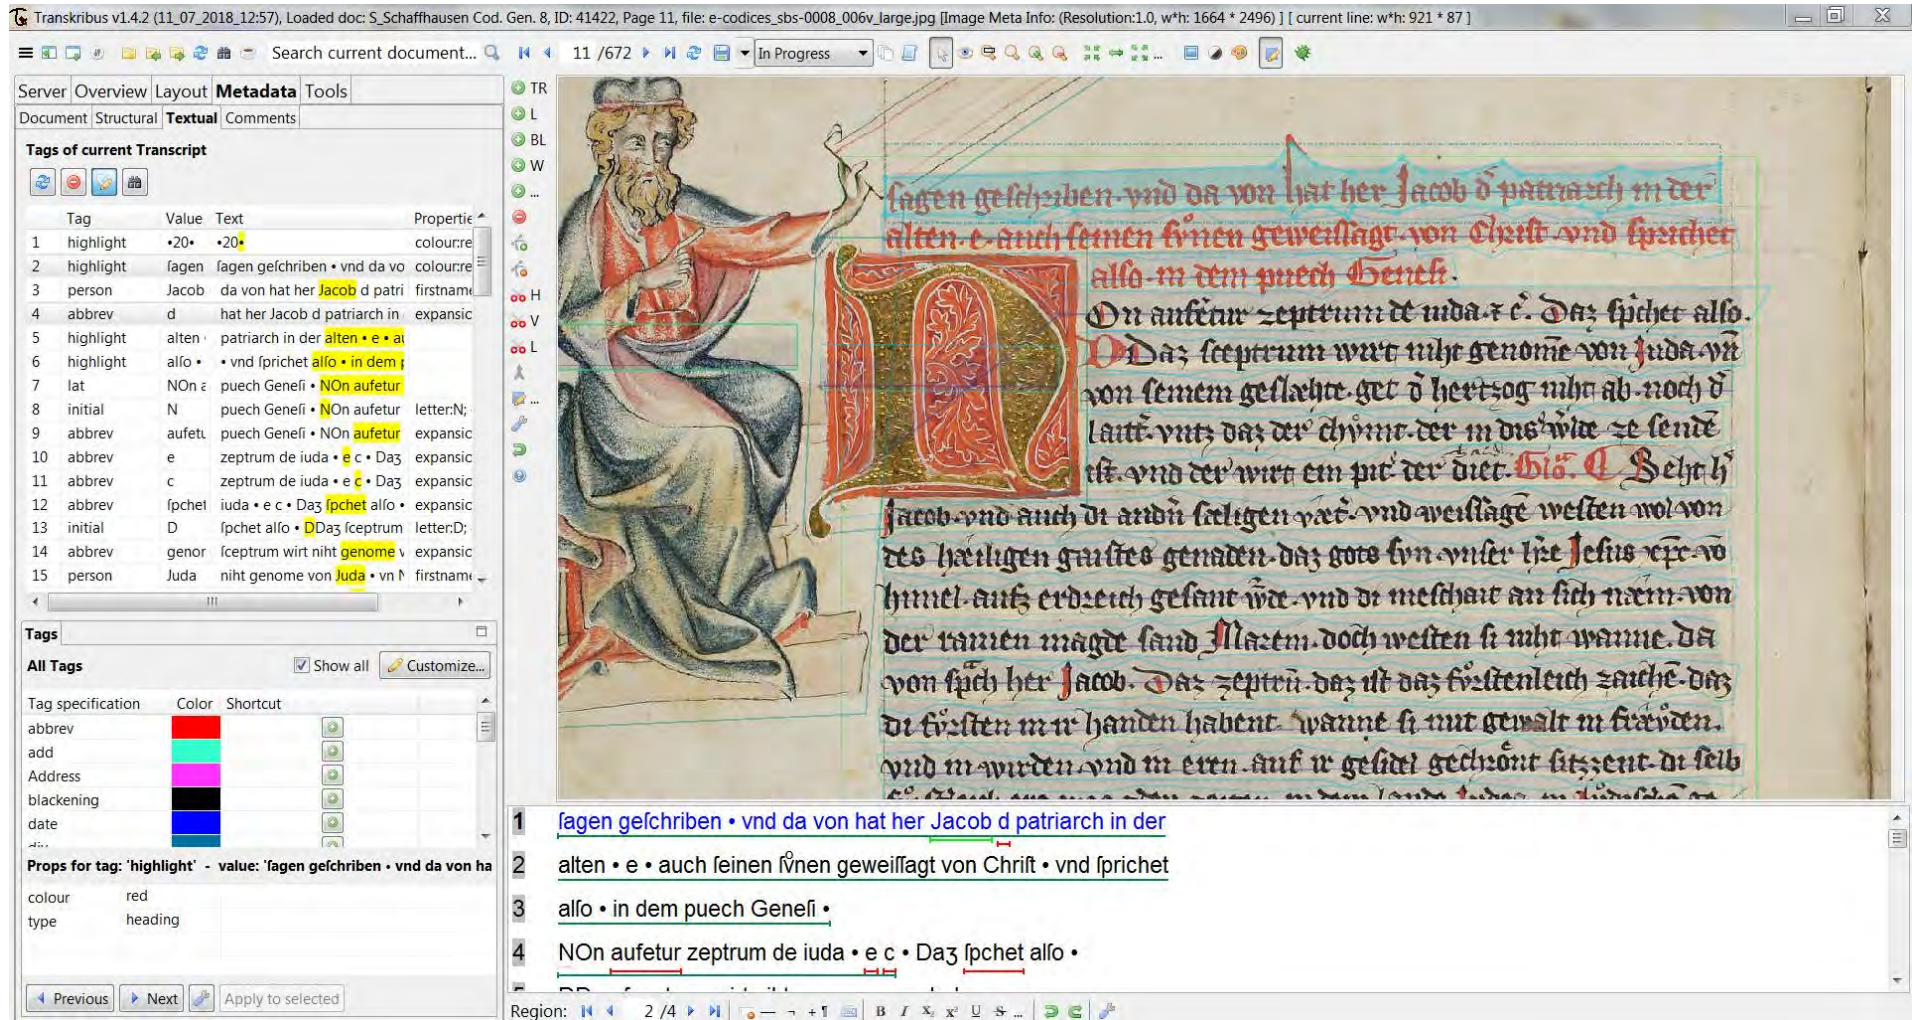 Transkribus v1.4.2 (11_07_2018_12:57), Loaded doc: S_Schaffhausen Cod. Gen. 8, ID: 41422, Page 11, file: e-codices_sbs-0008_006v_large.jpg [Image Meta Info: (Resolution:1.0, w*h: 1664 * 2496) ] [ current line: w*h: 921 * 87 ]
Search current document... 11 /672 In Progress
Server Overview Layout Metadata Tools
Document Structural Textual Comments
Tags of current Transcript
Tag Value Text Propertie
1 highlight •20• •20• colour:re
2 highlight ſagen ſagen geſchriben • vnd da vo colour:re
3 person Jacob da von hat her Jacob d patri firstname
4 abbrev d hat her Jacob d patriarch in expansic
5 highlight alten patriarch in der alten • e • au
6 highlight alſo • • vnd ſprichet alſo • in dem p
7 lat NOn a puech Geneſi • NOn aufetur
8 initial N puech Geneſi • NOn aufetur letter:N;
9 abbrev aufetu puech Geneſi • NOn aufetur expansic
10 abbrev e zeptrum de iuda • e c • Daʒ expansic
11 abbrev c zeptrum de iuda • e c • Daʒ expansic
12 abbrev ſpchet iuda • e c • Daʒ ſpchet alſo • expansic
13 initial D ſpchet alſo • DDaʒ ſceptrum letter:D;
14 abbrev genor ſceptrum wirt niht genome v expansic
15 person Juda niht genome von Juda • vn N firstname
Tags
All Tags Show all Customize...
Tag specification Color Shortcut
abbrev
add
Address
blackening
date
div
Props for tag: 'highlight' - value: 'ſagen geſchriben • vnd da von ha
colour red
type heading
Previous Next Apply to selected
TR
L
BL
W
...
H
V
L
...
ſagen geſchriben • vnd da von hat her Jacob d̛ patriarch in der
alten • e • auch ſeinen ſvͦnen geweiſſagt • von Chriſt • vnd ſprichet
alſo • in dem puech Geneſi •
On zeptrum de iuda • Daz alſo •
Daz ſceptrum wirt niht genome von Juda • vn
von ſeinem geſlæhte • get d̛ hertzog niht ab • noch d̛
vntz daz der der in ze
iſt • vnd der wirt ein der diet • Seht
Jacob • vnd auch di ſæligen vnd weiſſage weſten wol von
des hæiligen gaiſtes genaden • daz gots ſvn • vnſer Jeſus
himel • auf erdreich geſant vnd di an ſich von
der magde ſand doch weſten ſi niht wanne • Da
von her Jacob • Daz daz iſt daz daz
di in ir handen habent • wanne ſi mit gewalt in
vnd in wirden • vnd in eren • auf ir geſidel ſitzzent • di ſelb
1 ſagen geſchriben • vnd da von hat her Jacob d patriarch in der
2 alten • e • auch ſeinen ſvͦnen geweiſſagt von Chriſt • vnd ſprichet
3 alſo • in dem puech Geneſi •
4 NOn aufetur zeptrum de iuda • e c • Daʒ ſpchet alſo •
Region: 2 /4 B I X₂ x² U S ...